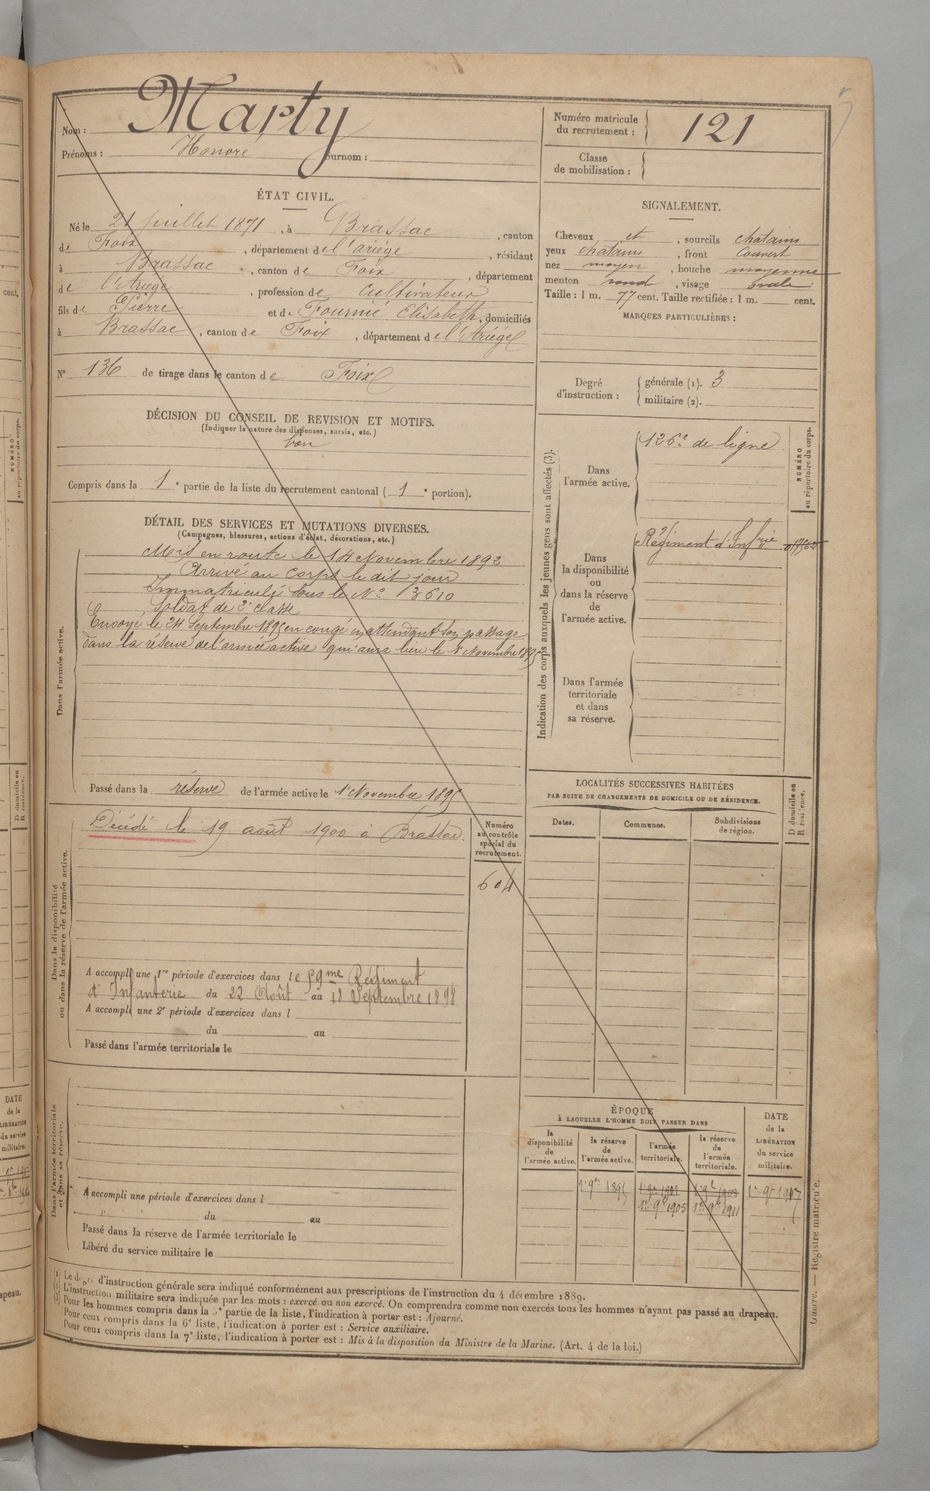 Nom : Marty
Prénoms : Honoré surnom :
Numéro matricule du recrutement : 121
Classe de mobilisation :
ÉTAT CIVIL.
Né le 21 juillet 1871, à Brassac, canton
de Foix, département de l'ariége, résidant
à Brassac, canton de Foix, département
de l'Ariége, profession de cultivateur
fils de Pierre et de Fournié Elisabeth, domiciliés
à Brassac, canton de Foix, département de l'Ariége
N° 136 de tirage dans le canton de Foix
SIGNALEMENT.
Cheveux et, sourcils chatains
yeux chatains, front couvert
nez moyen, bouche moyenne
menton rond, visage ovale
Taille : 1 m. 77 cent. Taille rectifiée : 1 m. cent.
MARQUES PARTICULIÈRES :
Degré d'instruction :
générale (1). 3
militaire (2).
DÉCISION DU CONSEIL DE REVISION ET MOTIFS.
(Indiquer la nature des dispenses, sursis, etc.)
bon
Compris dans la 1e partie de la liste du recrutement cantonal (1e portion).
DÉTAIL DES SERVICES ET MUTATIONS DIVERSES.
(Campagnes, blessures, actions d'éclat, décorations, etc.)
Dans l'armée active.
Mis en route le 14 Novembre 1892
Arrivé au corps le dit jour
Immatriculé sous le N° 3610
Soldat de 2e classe
Envoyé le 24 Septembre 1895 en congé en attendant son passage
dans la réserve de l'armée active qui aura lieu le 1r Novembre 1895
Passé dans la réserve de l'armée active le 1r Novembre 1895
Indication des corps auxquels les jeunes gens sont affectés (3).
NUMÉRO au répertoire du corps.
Dans l'armée active.
126e de ligne
Dans la disponibilité ou dans la réserve de l'armée active.
Régiment d'Infrie
Dans l'armée territoriale et dans sa réserve.
Dans la disponibilité ou dans la réserve de l'armée active.
Décédé le 19 août 1900 à Brassac.
Numéro au contrôle spécial du recrutement.
604
A accompli une 1re période d'exercices dans le 59me Régiment
d'Infanterie du 22 Août au 18 Septembre 1898
A accompli une 2e période d'exercices dans l
du au
Passé dans l'armée territoriale le
LOCALITÉS SUCCESSIVES HABITÉES
PAR SUITE DE CHANGEMENTS DE DOMICILE OU DE RÉSIDENCE.
Dates. Communes. Subdivisions de région.
D domicile ou R résidence.
Dans l'armée territoriale et dans sa réserve.
A accompli une période d'exercices dans l
du au
Passé dans la réserve de l'armée territoriale le
Libéré du service militaire le
ÉPOQUE
À LAQUELLE L'HOMME DOIT PASSER DANS
la disponibilité de l'armée active.
la réserve de l'armée active.
l'armée territoriale.
la réserve de l'armée territoriale.
DATE de la LIBÉRATION du service militaire.
1r 9bre 1895
1r 9bre 1905 1r 9bre 1911
(1) Le degré d'instruction générale sera indiqué conformément aux prescriptions de l'instruction du 4 décembre 1889.
(2) L'instruction militaire sera indiquée par les mots : exercé ou non exercé. On comprendra comme non exercés tous les hommes n'ayant pas passé au drapeau.
(3) Pour les hommes compris dans la 5e partie de la liste, l'indication à porter est : Ajourné.
Pour ceux compris dans la 6e liste, l'indication à porter est : Service auxiliaire.
Pour ceux compris dans la 7e liste, l'indication à porter est : Mis à la disposition du Ministre de la Marine. (Art. 4 de la loi.)
Guerre. — Registre matricule.